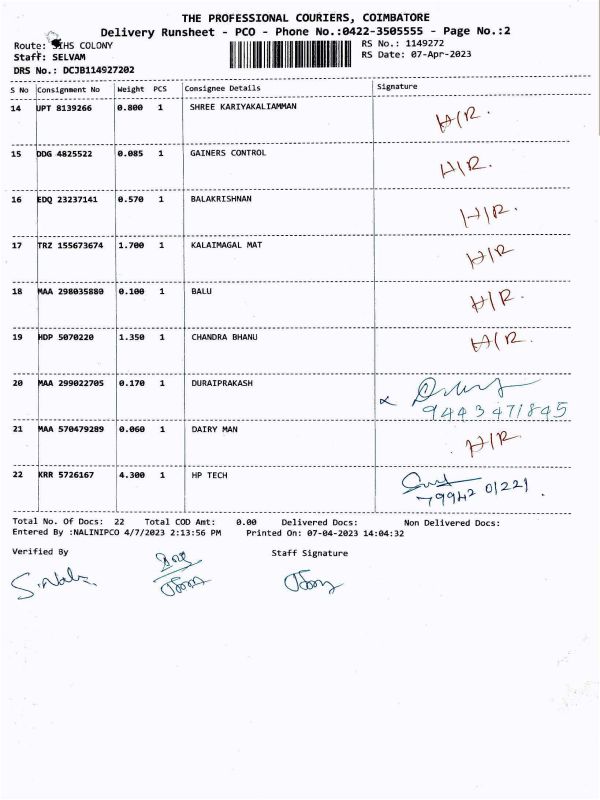 THE PROFESSIONAL COURIERS, COIMBATORE
Delivery Runsheet - PCO - Phone No.:0422-3505555 - Page No.:2
Route: SIHS COLONY RS No.: 1149272
Staff: SELVAM RS Date: 07-Apr-2023
DRS No.: DCJB114927202
S No Consignment No Weight PCS Consignee Details Signature
14 UPT 8139266 0.800 1 SHREE KARIYAKALIAMMAN H/R.
15 DDG 4825522 0.085 1 GAINERS CONTROL H/R.
16 EDQ 23237141 0.570 1 BALAKRISHNAN H/R.
17 TRZ 155673674 1.700 1 KALAIMAGAL MAT H/R
18 MAA 298035880 0.100 1 BALU H/R.
19 HDP 5070220 1.350 1 CHANDRA BHANU H/R.
20 MAA 299022705 0.170 1 DURAIPRAKASH
9443471845
21 MAA 570479289 0.060 1 DAIRY MAN H/R
22 KRR 5726167 4.300 1 HP TECH
79942 01221.
Total No. Of Docs: 22 Total COD Amt: 0.00 Delivered Docs: Non Delivered Docs:
Entered By :NALINIPCO 4/7/2023 2:13:56 PM Printed On: 07-04-2023 14:04:32
Verified By Staff Signature